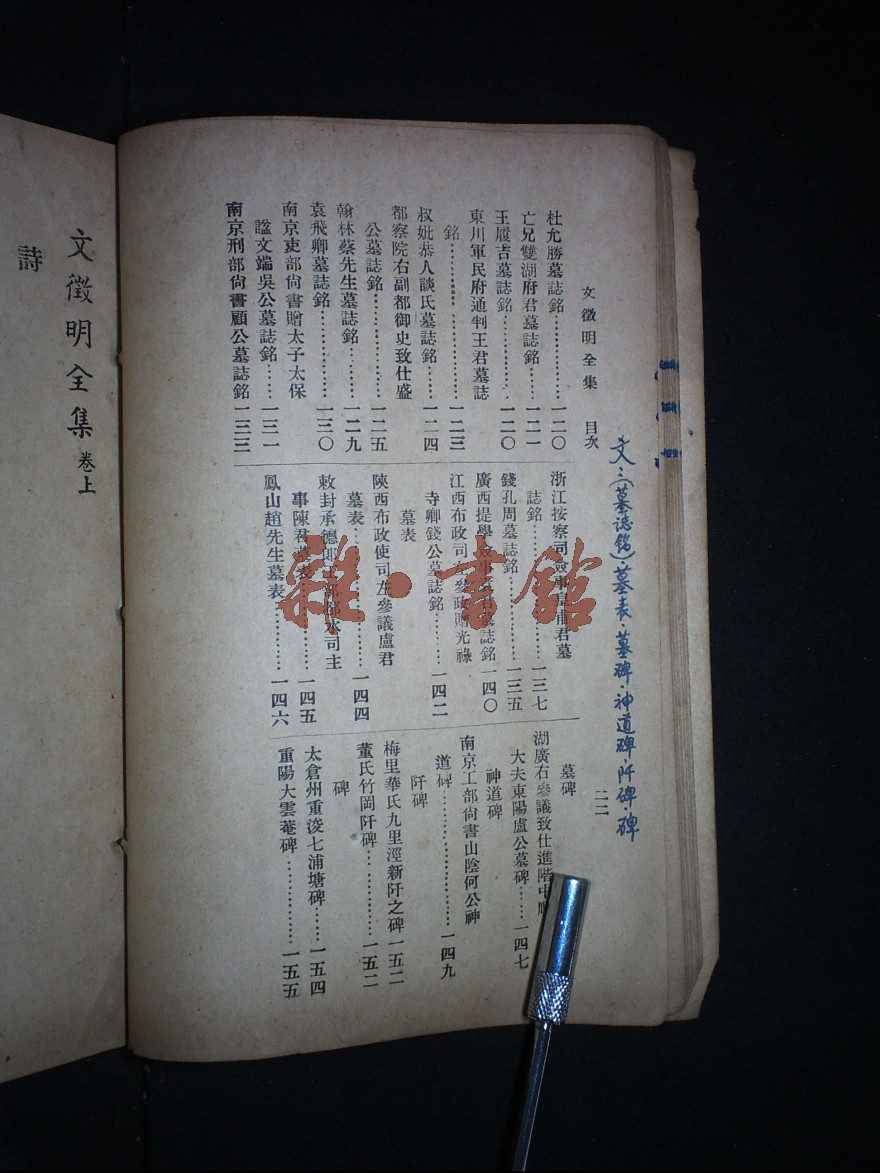 文三(墓誌銘)·墓表·墓碑·神道碑·阡碑·碑
文徵明全集 目次 二二
杜允勝墓誌銘…………一二〇
亡兄雙湖府君墓誌銘……一二一
王履吉墓誌銘…………一二〇
東川軍民府通判王君墓誌
銘…………一二三
叔妣恭人談氏墓誌銘……一二四
都察院右副都御史致仕盛
公墓誌銘…………一二五
翰林蔡先生墓誌銘……一二九
袁飛卿墓誌銘…………一三〇
南京吏部尙書贈太子太保
諡文端吳公墓誌銘……一三一
南京刑部尙書顧公墓誌銘 一三三
浙江按察司僉事 君墓
誌銘…………一三七
錢孔周墓誌銘…………一三五
廣西提學 墓誌銘 一四〇
江西布政司左參政贈光祿
寺卿錢公墓誌銘……一四二
墓表
陝西布政使司左參議盧君
墓表…………一四四
敕封承德郎工部都水司主
事陳君墓表…………一四五
鳳山趙先生墓表…………一四六
墓碑
湖廣右參議致仕進階中
大夫東陽盧公墓碑……一四七
神道碑
南京工部尙書山陰何公神
道碑…………一四九
阡碑
梅里華氏九里涇新阡之碑 一五二
董氏竹岡阡碑…………一五二
碑
太倉州重浚七浦塘碑……一五四
重陽大雲菴碑…………一五五
文徵明全集 卷上
詩
雜·書館